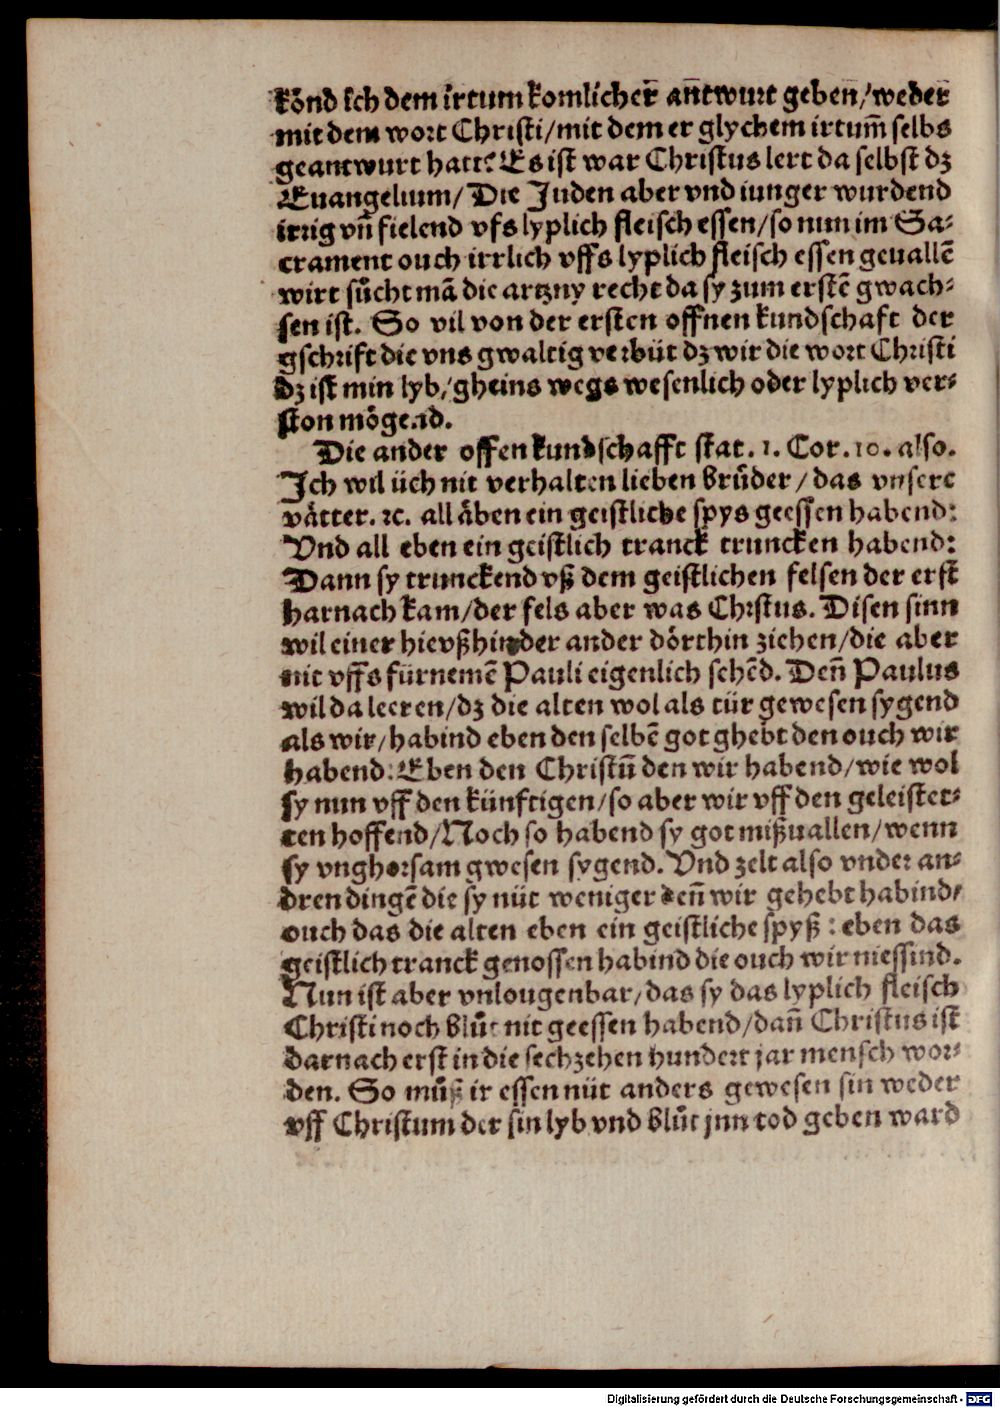 könd ich dem irtum komlicher antwurt geben/weder
mit dem wort Christi/mit dem er glychem irtum̄ selbs
geantwurt hatt? Es ist war Christus lert da selbst dz
Euangelium/ Die Juden aber vnd iunger wurdend
irrig vn̄ fielend vfs lyplich fleisch essen/so nun im Sa-
crament ouch irrlich vffs lyplich fleisch essen geuallē
wirt sůcht mā die artzny recht da sy zum erstē gwach-
sen ist. So vil von der ersten offnen kundschaft der
gschrift die vns gwaltig verbüt dz wir die wort Christi
dz ist min lyb/gheins wegs wesenlich oder lyplich ver-
ston mögend.
Die ander offen kundschafft stat. 1. Cor. 10. also.
Ich wil üch nit verhalten lieben brůder/ das vnsere
vätter. ⁊c. all äben ein geistliche spys geessen habend:
Vnd all eben ein geistlich tranck truncken habend:
Dann sy trunckend vß dem geistlichen felsen der erst
harnach kam/der fels aber was Christus. Disen sinn
wil einer hievßhin der ander dörthin ziehen/die aber
nit vffs fürnemē Pauli eigenlich sehēd. Den̄ Paulus
wil da leeren/dz die alten wol als tür gewesen sygend
als wir/habind eben den selbē got ghebt den ouch wir
habend: Eben den Christū den wir habend/wie wol
sy nun vff den künftigen/so aber wir vff den geleister-
ten hoffend/Noch so habend sy got mißuallen/wenn
sy vnghorsam gwesen sygend. Vnd zelt also vnder an-
dren dingē die sy nüt weniger den̄ wir gehebt habind/
ouch das die alten eben ein geistliche spyß: eben das
geistlich tranck genossen habind die ouch wir niessind.
Nun ist aber vnlougenbar/das sy das lyplich fleisch
Christi noch blůt nit geessen habend/dan̄ Christus ist
darnach erst in die sechzehen hundert jar mensch wor-
den. So můß ir essen nüt anders gewesen sin weder
vff Christum der sin lyb vnd blůt jnn tod geben ward
Digitalisierung gefördert durch die Deutsche Forschungsgemeinschaft - DFG